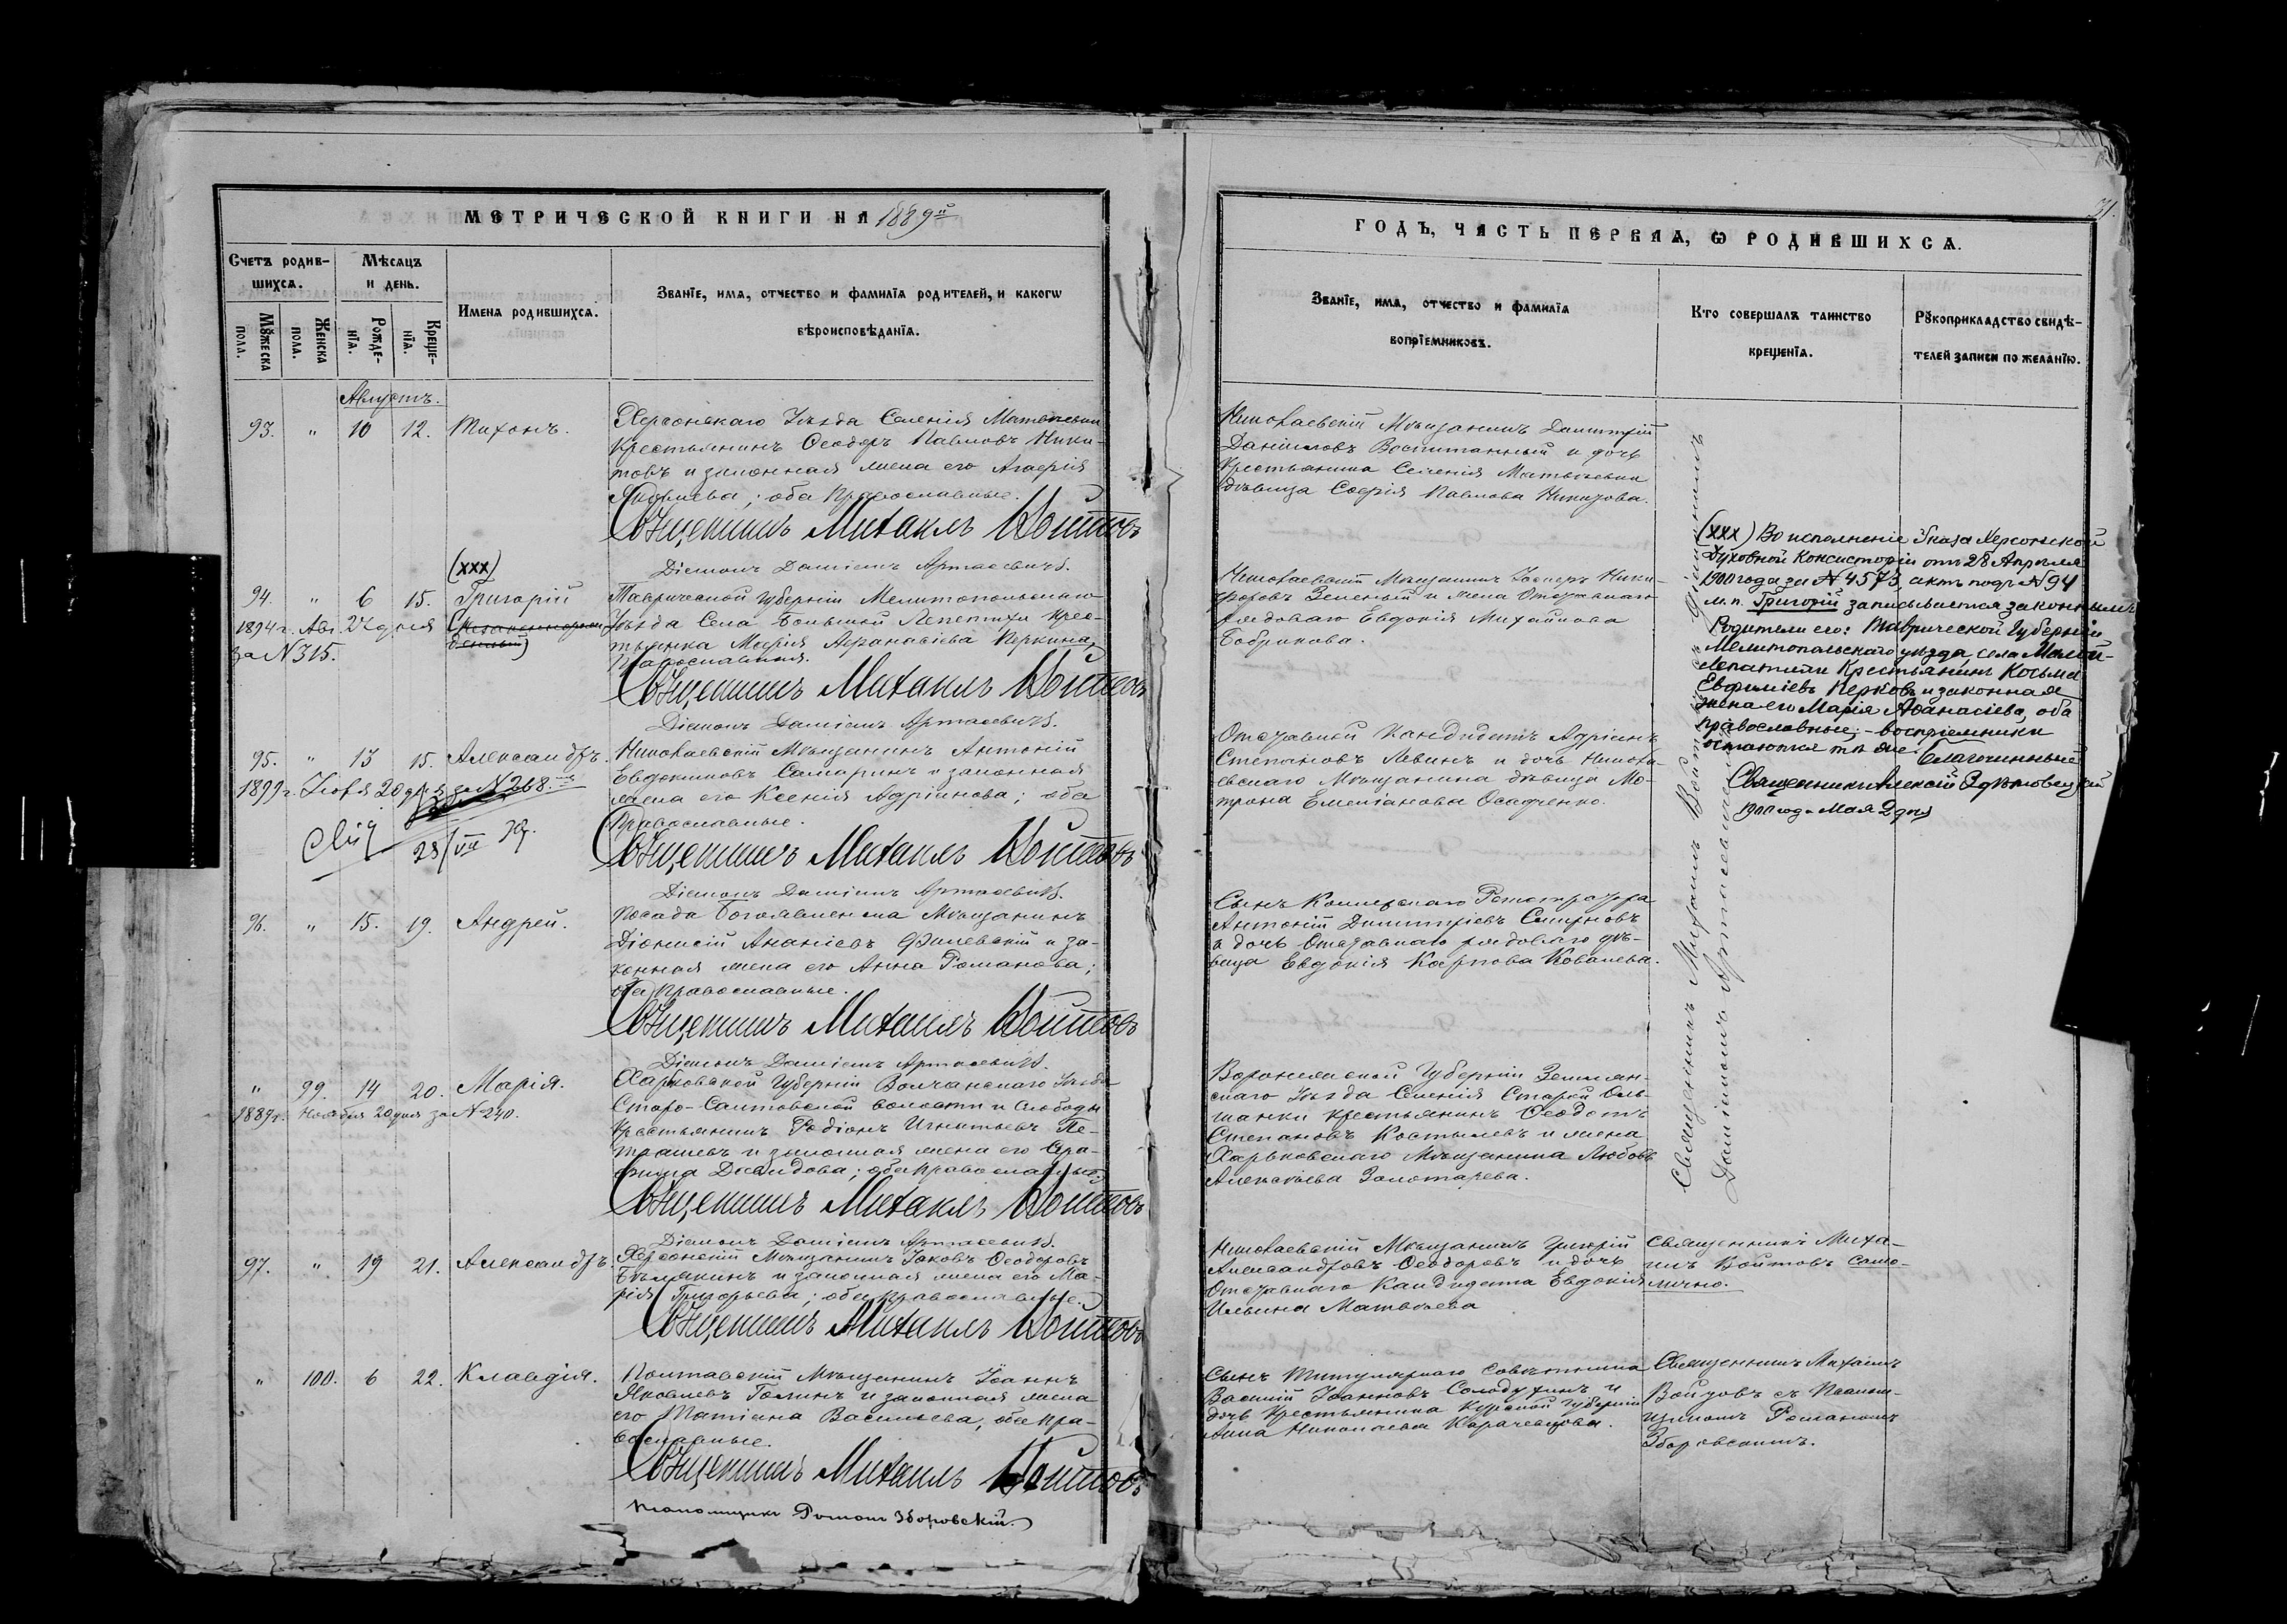 МЕТРИЧЕСКОЙ КНИГИ НА 1889й
Счетъ родив-
шихся.
Мѣсяцъ
и день.
Мужеска
пола.
Женска
пола.
Рожде-
нія.
Креще-
нія.
Имена родившихся.
Званіе, имя, отчество и фамилія родителей, и какогѡ
вѣроисповѣданія.
Августъ.
93. " 10 12. Тихонъ.
Херсонскаго Уѣзда Селенія Матвѣевки
Крестьянинъ Ѳеодоръ Павловъ Ники-
товъ и законная жена его Агаѳія
оба Православные.
Священникъ Михаилъ Войтовъ
Діаконъ Даміанъ Артасевичъ.
(ххх)
94. " 6 15. Григорій
1894 г. Авг. 27 дня
за N 315.
Таврической Губерніи Мелитопольскаго
Уѣзда Села Большой Лепетихи Крес-
тьянка Марія Аѳанасіева Перкина,
Православная.
Священникъ Михаилъ Войтовъ
Діаконъ Даміанъ Артасевичъ.
95. " 13 15. Александръ.
1899 г. 20 дня за N 268.
28/VII 99 г.
Николаевскій Мѣщанинъ Антоній
Евдокимовъ Самаринъ и законная
жена его Ксенія Адріанова; оба
Православные.
Священникъ Михаилъ Войтовъ
Діаконъ Даміанъ Артасевичъ.
96. " 15. 19. Андрей.
Посада Богоявленска Мѣщанинъ
Діонисій Ананіевъ Филевскій и за-
конная жена его Анна Романова;
оба Православные.
Священникъ Михаилъ Войтовъ
Діаконъ Даміанъ Артасевичъ.
" 99. 14 20. Марія.
1889 г. Ноября 20 дня за N 240.
Харьковской Губерніи Волчанскаго Уѣзда
Старо-Салтовской волости и Слободы
Крестьянинъ Родіонъ Игнатьевъ Пе-
и законная жена его
Давидова; оба православные.
Священникъ Михаилъ Войтовъ
Діаконъ Даміанъ Артасевичъ.
97. " 19 21. Александръ.
Херсонскій Мѣщанинъ Іаковъ Ѳеодоровъ
и законная жена его Ма-
рія Григорьева; оба православные.
Священникъ Михаилъ Войтовъ
" 100. 6 22. Клавдія.
Полтавскій Мѣщанинъ Іоаннъ
Яковлевъ и законная жена
его Татіана Васильева, оба пра-
вославные.
Священникъ Михаилъ Войтовъ
Псаломщикъ Романъ Зборовскій.
31.
ГОДЪ, ЧАСТЬ ПЕРВАЯ, Ѡ РОДИВШИХСЯ.
Званіе, имя, отчество и фамилія
воспріемниковъ.
Кто совершалъ таинство
крещенія.
Рукоприкладство свидѣ-
телей записи по желанію.
Николаевскій Мѣщанинъ Димитрій
Даніиловъ Воспитанный и дочь
Крестьянина Селенія Матвѣевки
дѣвица Софія Павлова
Николаевскій Мѣщанинъ Ники-
форовъ Зеленый и жена Отставнаго
рядоваго Евдокія Михайлова
Бобрикова.
Отставной Кандидатъ Адріанъ
Степановъ Левинъ и дочь Никола-
евскаго Мѣщанина дѣвица Ма-
трона Емеліанова Осадченко.
Сынъ Коллежскаго Регистратора
Антоній Димитріевъ Смирновъ
и дочь Отставнаго рядоваго дѣ-
вица Евдокія Карпова Ковалева.
Воронежской Губерніи Землян-
скаго Уѣзда Селенія Старой Оль-
шанки крестьянинъ Ѳеодотъ
Степановъ Костылевъ и жена
Харьковскаго Мѣщанина Любовь
Алексѣева Золотарева.
Николаевскій Мѣщанинъ Григорій
Александровъ Ѳеодоровъ и дочь
Отставнаго Кандидата Евдокія
Ильина Матвѣева
Сынъ Титулярнаго Совѣтника
Василій Іоанновъ Солодухинъ и
дочь Крестьянина Курской Губерніи
Анна Николаева
Священникъ Михаилъ Войтовъ съ Діакономъ
Даміаномъ Артасевичемъ
Священникъ Миха-
илъ Войтовъ само-
лично.
Священникъ Михаилъ
Войтовъ съ Псалом-
щикомъ Романомъ
Зборовскимъ.
(ххх) Во исполненіе Указа Херсонской
Духовной Консисторіи отъ 28 Апрѣля
1900 года за N 4573, актъ подъ N 94
м. п. Григорій записывается законнымъ
Родители его: Таврической Губерніи
Мелитопольскаго уѣзда, села Малой-
Лепатихи Крестьянинъ Косьма
Евфиміевъ Перковъ и законная
жена его Марія Аѳанасіева, оба
православные; – воспріемники
остаются тѣ же. Благочинный
Священникъ Алексій
1900 год. Мая 2 дня